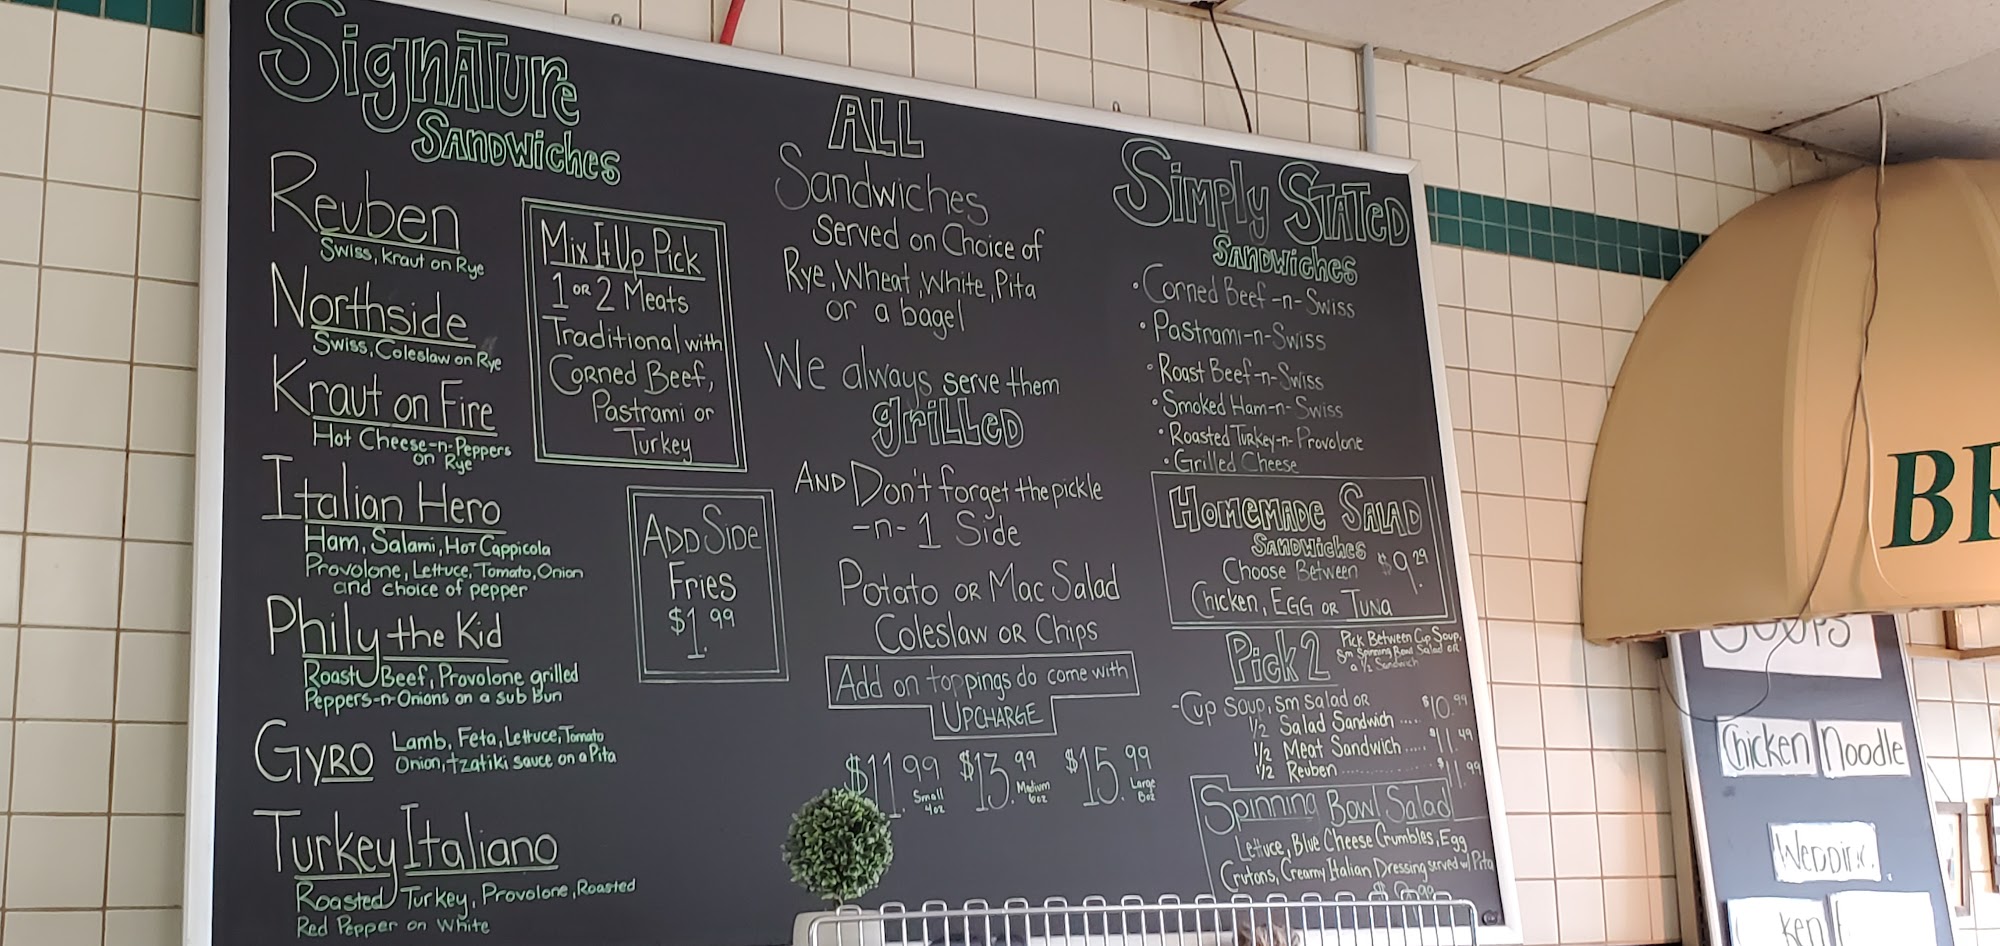 Signature
Sandwiches
Reuben
Swiss, Kraut on Rye
Northside
Swiss, Coleslaw on Rye
Kraut on Fire
Hot Cheese-n-Peppers
on Rye
Italian Hero
Ham, Salami, Hot Cappicola
Provolone, Lettuce, Tomato, Onion
and choice of pepper
Philly the Kid
Roast Beef, Provolone grilled
Peppers-n-Onions on a sub bun
Gyro
Lamb, Feta, Lettuce, Tomato
Onion, tzatiki sauce on a Pita
Turkey Italiano
Roasted Turkey, Provolone, Roasted
Red Pepper on White
Mix It Up Pick
1 or 2 Meats
Traditional with
Corned Beef,
Pastrami or
Turkey
Add Side
Fries
$1.99
ALL
Sandwiches
Served on Choice of
Rye, Wheat, White, Pita
or a bagel
We always serve them
grilled
And Don't forget the pickle
-n- 1 Side
Potato or Mac Salad
Coleslaw or Chips
Add on toppings do come with
Upcharge
$11.99 $13.99 $15.99
Small Medium Large
4oz 6oz 8oz
Simply Stated
Sandwiches
• Corned Beef-n-Swiss
• Pastrami-n-Swiss
• Roast Beef-n-Swiss
• Smoked Ham-n-Swiss
• Roasted Turkey-n-Provolone
• Grilled Cheese
Homemade Salad
Sandwiches
Choose Between $9.29
Chicken, Egg or Tuna
Pick 2
Pick Between Cup Soup,
Sm Spinning Bowl Salad or
a 1/2 Sandwich
-Cup Soup, sm salad or
1/2 Salad Sandwich ..... $10.99
1/2 Meat Sandwich ..... $11.49
1/2 Reuben .............. $11.99
Spinning Bowl Salad
Lettuce, Blue Cheese Crumbles, Egg
Crutons, Creamy Italian Dressing served w/ Pita
BR
Soups
Chicken Noodle